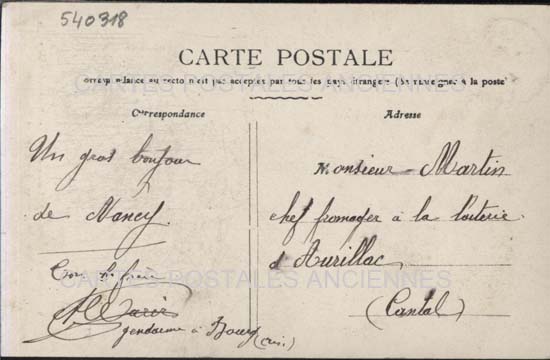 540318
CARTE POSTALE
Correspondance au recto n'est pas acceptée par tous les pays étrangers (Se renseigner à la poste)
CARTES POSTALES ANCIENNES
Correspondance
Adresse
Un gros bonjour
de Nancy
Monsieur Martin
chef fromager à la laiterie
d'Aurillac
(Cantal)
CARTES POSTALES ANCIENNES
gendarme à Bourg